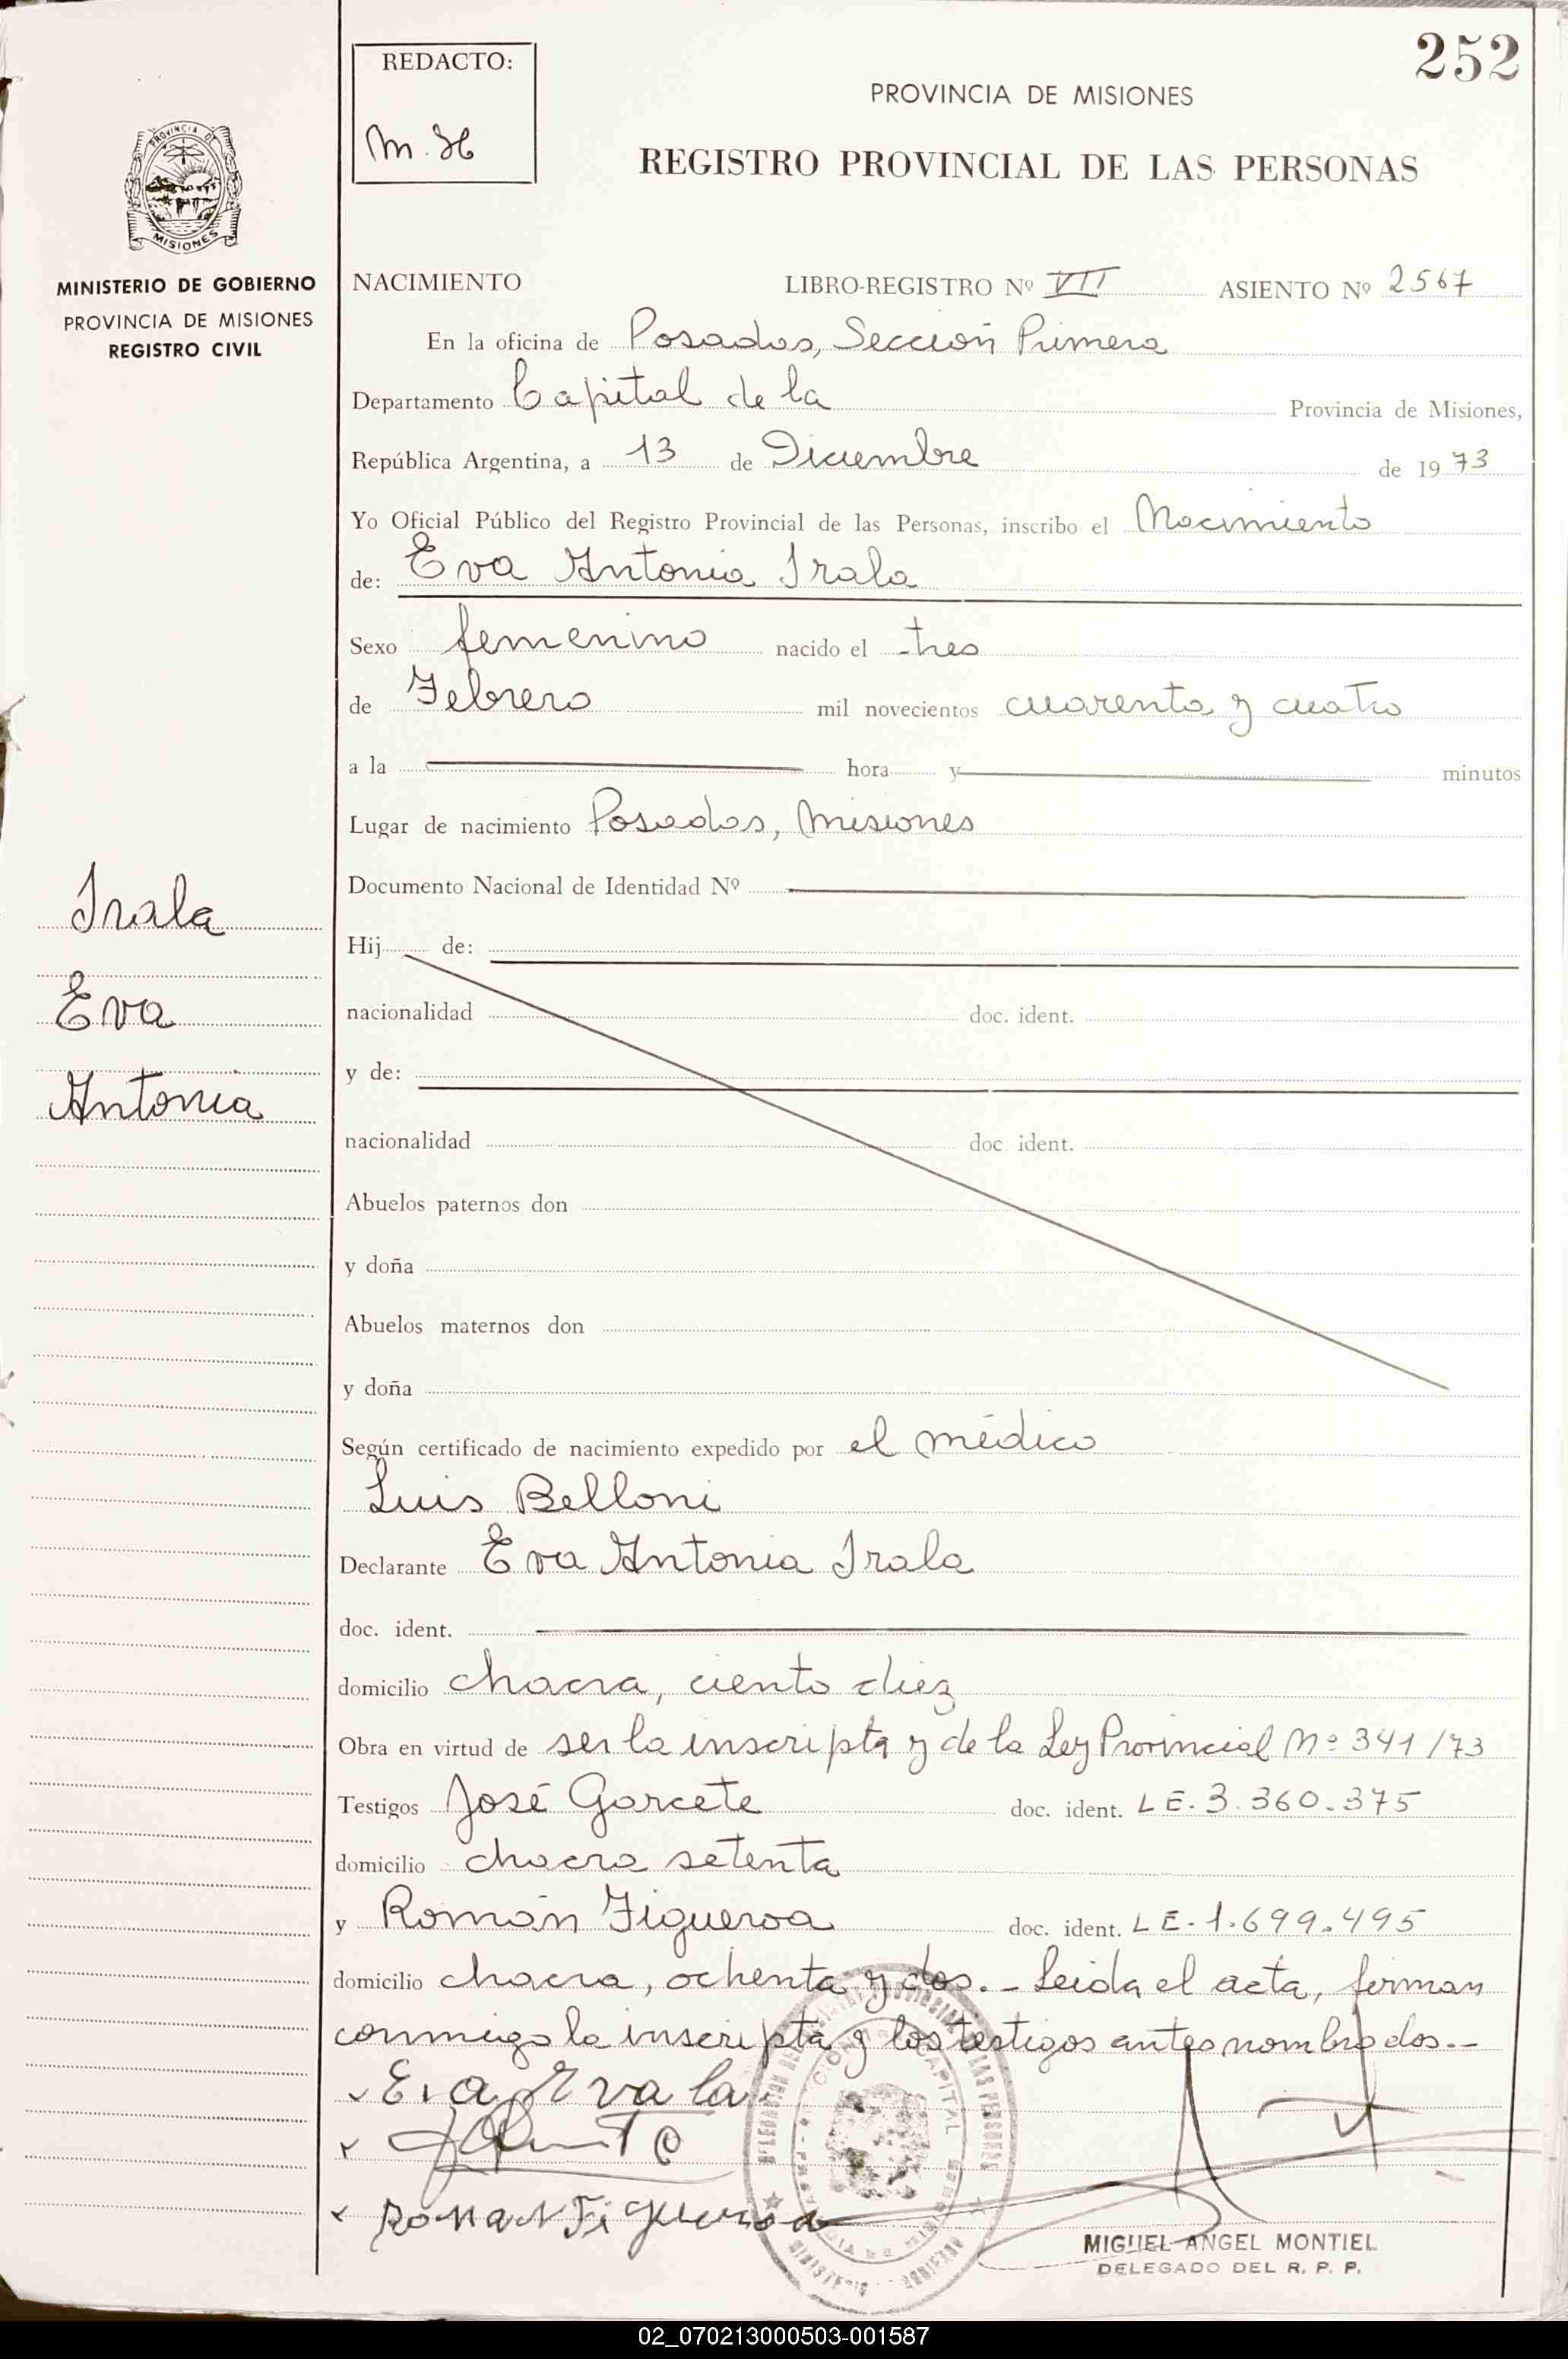 252
REDACTO:
M. H
PROVINCIA DE MISIONES
REGISTRO PROVINCIAL DE LAS PERSONAS
PROVINCIA DE
MISIONES
MINISTERIO DE GOBIERNO
PROVINCIA DE MISIONES
REGISTRO CIVIL
NACIMIENTO LIBRO-REGISTRO Nº VII ASIENTO Nº 2567
En la oficina de Posadas, Sección Primera
Departamento Capital de la Provincia de Misiones,
República Argentina, a 13 de Diciembre de 1973
Yo Oficial Público del Registro Provincial de las Personas, inscribo el Nacimiento
de: Eva Antonia Irala
Sexo femenino nacido el tres
de Febrero mil novecientos cuarenta y cuatro
a la hora y minutos
Lugar de nacimiento Posadas, Misiones
Documento Nacional de Identidad Nº
Irala
Eva
Antonia
Hij de:
nacionalidad doc. ident.
y de:
nacionalidad doc. ident.
Abuelos paternos don
y doña
Abuelos maternos don
y doña
Según certificado de nacimiento expedido por el médico
Luis Belloni
Declarante Eva Antonia Irala
doc. ident.
domicilio chacra, ciento diez
Obra en virtud de ser la inscripta y de la Ley Provincial Nº 341/73
Testigos José Garcete doc. ident. LE. 3.360.375
domicilio chacra setenta
y Román Figueroa doc. ident. LE-1.699.495
domicilio chacra, ochenta y dos.- Leida el acta, firman
conmigo la inscripta y los testigos antes nombrados.-
Eva Irala
Roman Figueroa
MIGUEL ANGEL MONTIEL
DELEGADO DEL R. P. P.
02_070213000503-001587